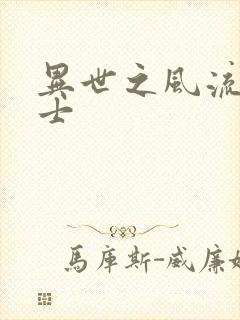 異世之風流
士
馬庫斯-威廉